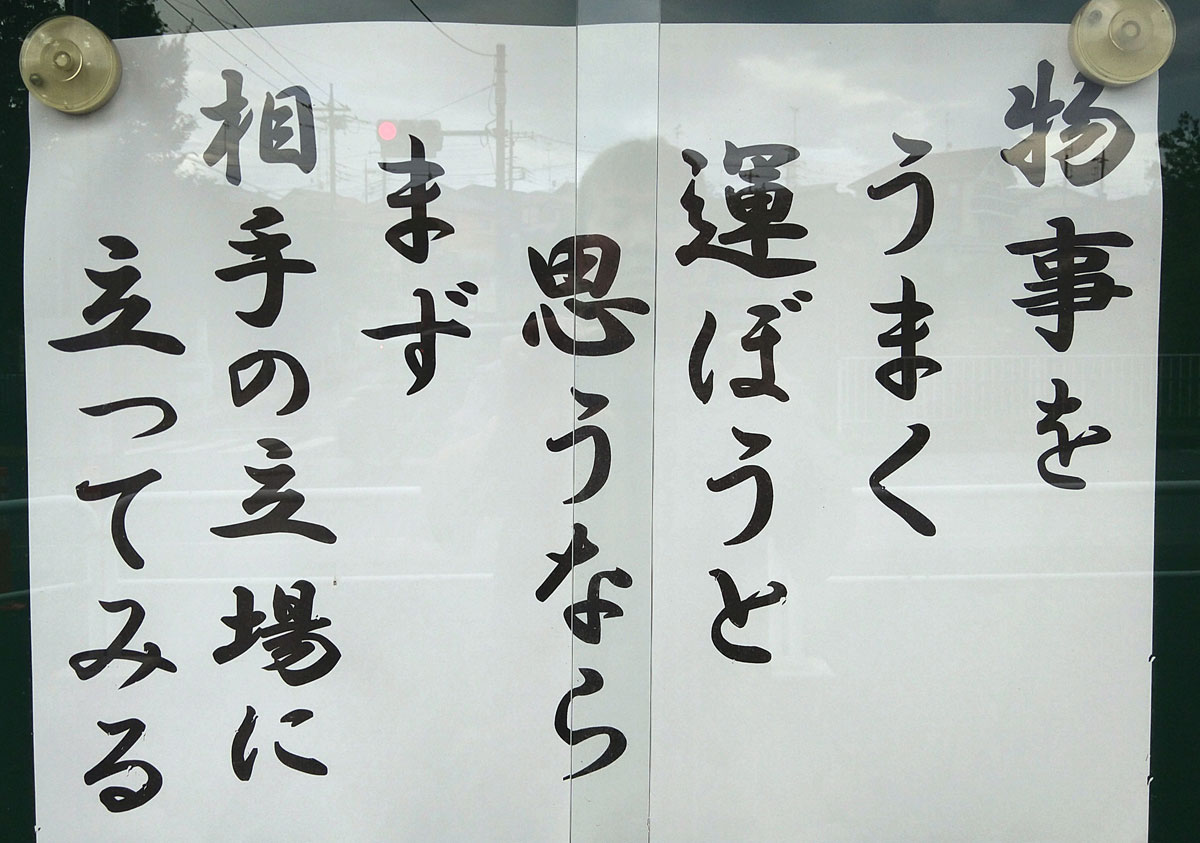 物事を
うまく
運ぼうと
思うなら
まず
相手の立場に
立ってみる